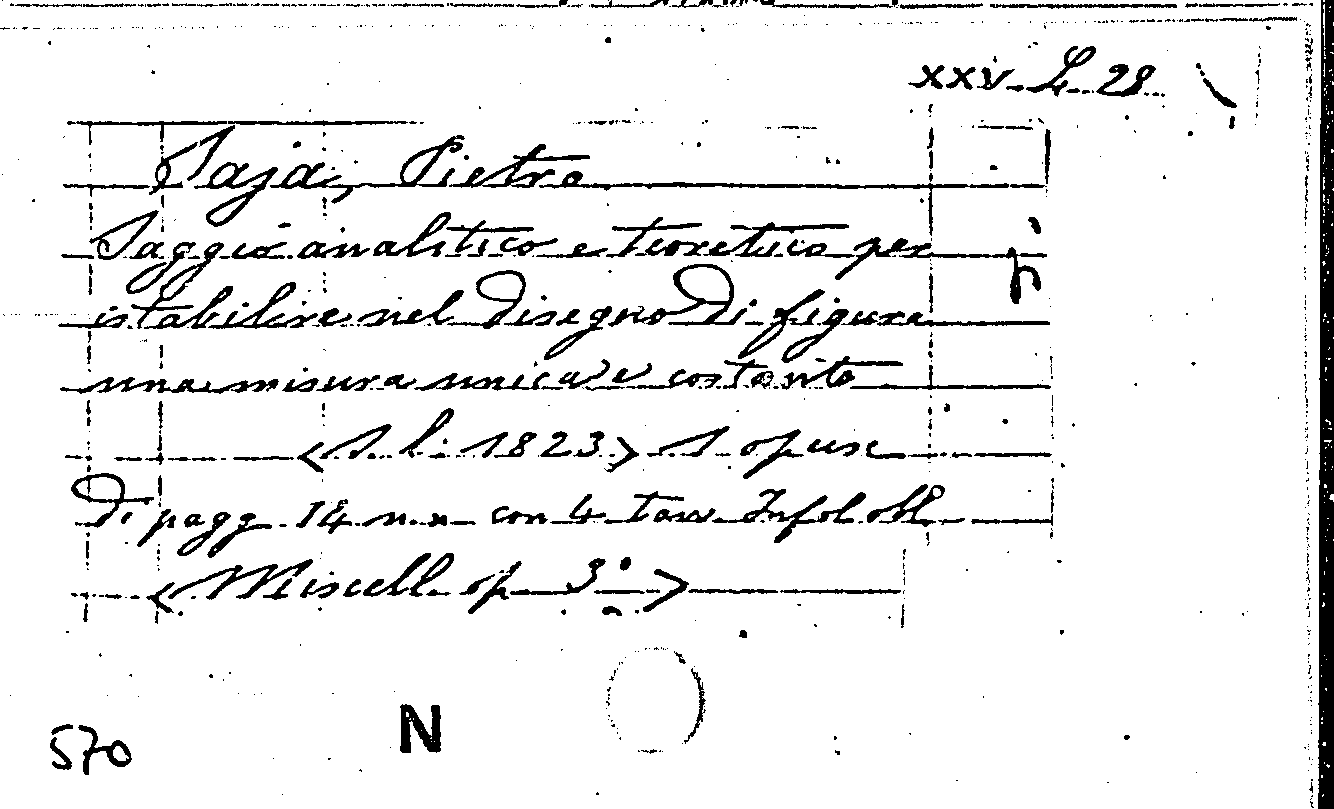 XXV. L. 28
Saja, Pietro
Saggio analitico e teoretico per
istabilire nel disegno di figura
una misura unica e costante
<S. l. 1823> 1 opusc
di pagg. 14 n.n. con 4 tavv. In fol. obl.
<Miscell. op. 3°>
570
N